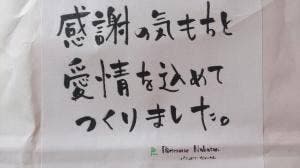 感謝の気もちと
愛情を込めて
つくりました。